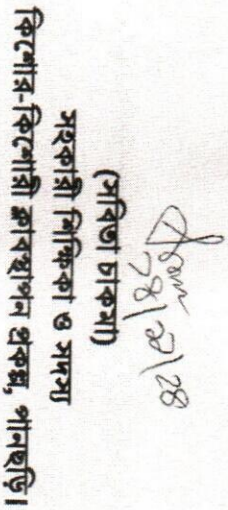 (সবিতা চাকমা)
সহকারী শিক্ষিকা ও সদস্য
কিশোর-কিশোরী ক্লাবস্থাপন প্রকল্প, পানছড়ি।